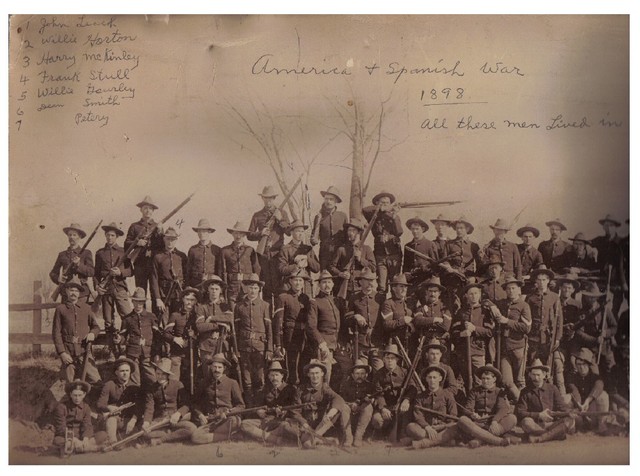 1 John Leach
2 Willie Horton
3 Harry McKinley
4 Frank Still
5 Willie
6 Smith
7 Petery
America & Spanish War
1898
All these men Lived in
4